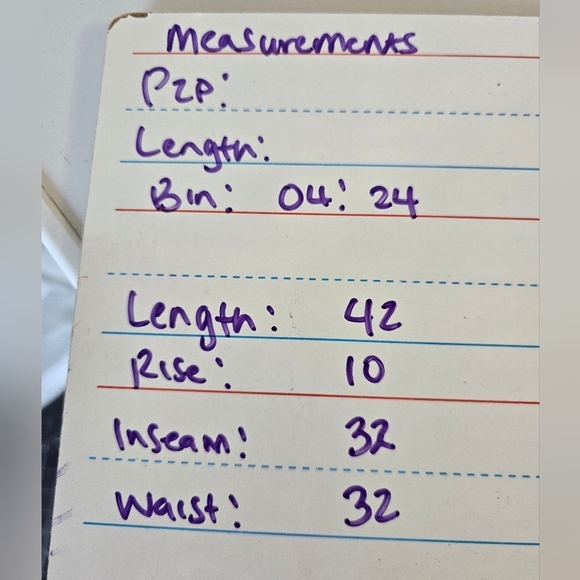 Measurements
P2P:
Length:
Bin: 04: 24
Length: 42
Rise: 10
Inseam: 32
Waist: 32